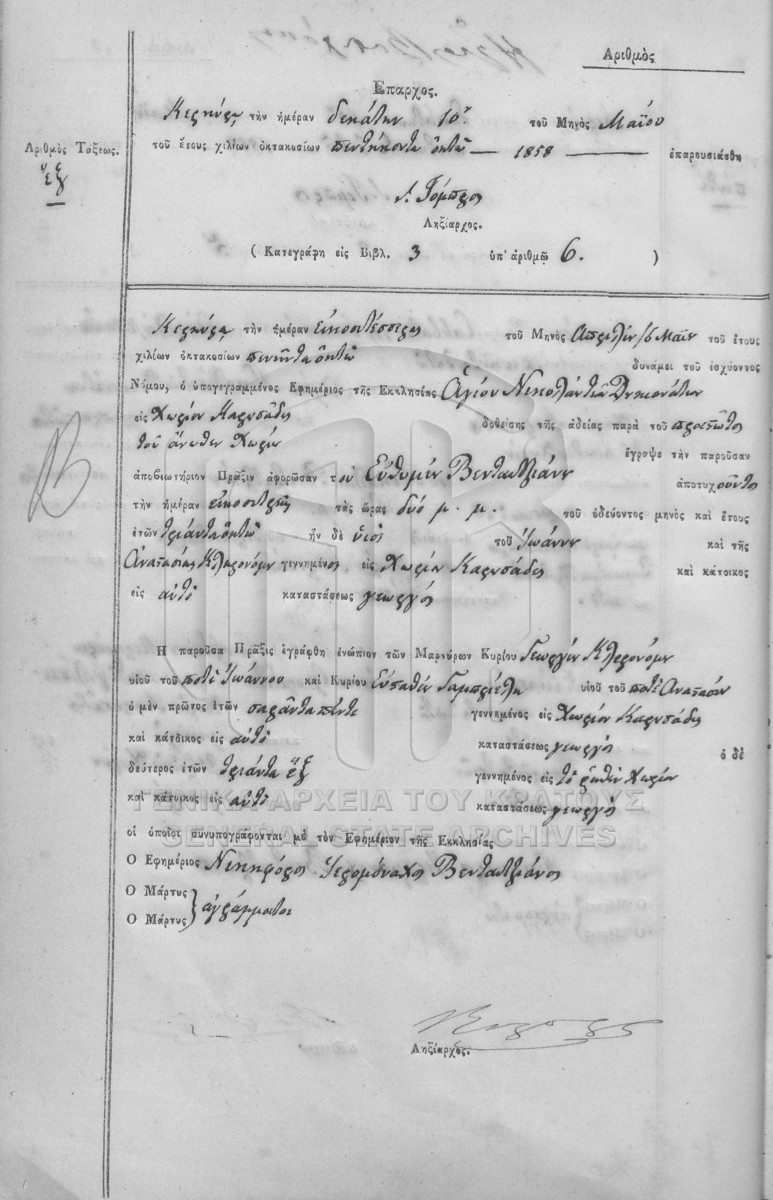 Ἀριθμὸς
Ἔπαρχος.
Κερκύρᾳ τὴν ἡμέραν δεκάτην 10ῃ τοῦ Μηνὸς Μαΐου
τοῦ ἔτους χιλίων ὀκτακοσίων πεντήκοντα ὀκτὼ — 1858 — ἐπαρουσιάσθη
Ἀριθμὸς Τάξεως.
ἕξ
Ληξίαρχος.
( Κατεγράφη εἰς Βιβλ. 3 ὑπ' ἀριθμῷ 6. )
Κερκύρᾳ τὴν ἡμέραν εἰκοστέσσερες τοῦ Μηνὸς Ἀπριλίου/6 Μαΐου τοῦ ἔτους
χιλίων ὀκτακοσίων πενῆντα ὀκτὼ δυνάμει τοῦ ἰσχύοντος
Νόμου, ὁ ὑπογεγραμμένος Ἐφημέριος τῆς Ἐκκλησίας Ἁγίου Νικολάου
εἰς Χωρίον Καρυσάδες δοθείσης τῆς ἀδείας παρὰ τοῦ
τοῦ ἄνωθεν Χωρίου ἔγραψε τὴν παροῦσαν
ἀποβιωτήριον Πρᾶξιν ἀφορῶσαν τοῦ Εὐθυμίου Βεντατζιάνου ἀποτυχοῦντος
τὴν ἡμέραν εἰκοστρεῖς τὰς ὥρας δύο μ. μ. τοῦ ὁδεύοντος μηνὸς καὶ ἔτους
ἐτῶν τριάντα ὀκτὼ ἦν δὲ ὑιὸς τοῦ Ἰωάννου καὶ τῆς
Ἀναστασίας Κληρονόμου γεννημένος εἰς Χωρίον Καρυσάδες καὶ κάτοικος
εἰς αὐτὸ καταστάσεως γεωργὸς
Ἡ παροῦσα Πρᾶξις ἐγράφθη ἐνώπιον τῶν Μαρτύρων Κυρίου Γεωργίου Κληρονόμου
υἱοῦ τοῦ ποτὲ Ἰωάννου καὶ Κυρίου Εὐσταθίου υἱοῦ τοῦ ποτὲ Ἀναστασίου
ὁ μὲν πρῶτος ἐτῶν σαράντα πέντε γεννημένος εἰς Χωρίον Καρυσάδες
καὶ κάτοικος εἰς αὐτὸ καταστάσεως γεωργὸς ὁ δὲ
δεύτερος ἐτῶν τριάντα ἕξ γεννημένος εἰς τὸ ῥηθὲν Χωρίον
καὶ κάτοικος εἰς αὐτὸ καταστάσεως γεωργὸς
ΓΕΝΙΚΑ ΑΡΧΕΙΑ ΤΟΥ ΚΡΑΤΟΥΣ
GENERAL STATE ARCHIVES
οἱ ὁποῖοι συνυπογράφονται μὲ τὸν Ἐφημέριον τῆς Ἐκκλησίας
Ὁ Ἐφημέριος Νικηφόρος Ἱερομόναχος Βεντατζιάνος
Ὁ Μάρτυς
Ὁ Μάρτυς } ἀγράμματοι
Ληξίαρχος.